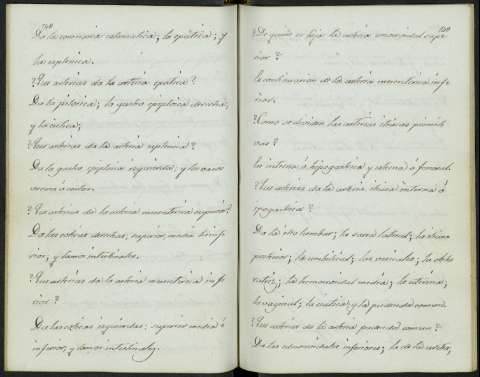 Da la coronaria estomatica; la epatica; y
la esplenica.
¿Que arterias da la arteria epatica?
Da la pilorica; la gastro epiploica derecha,
y la cistica;
¿Que arterias da la arteria esplenica?
Da la gastro epiploica izquierda; y los vasos
¿Que arterias da la arteria mesenterica superior?
Da las colicas derechas, superior, media e infe
rior; y ramos intestinales.
¿Que arterias da la arteria mesenterica infe
rior?
Da las colicas izquierdas; superior media é
inferior; y ramos intestinales.
¿De quien es hija la arteria emorroidal supe
rior?
la continuacion de la arteria mesenterica infe
rior.
¿Como se dividen las arterias iliacas primiti
vas?
En interna ó hipogastrica y esterna ó femoral.
¿Que arterias da la arteria iliaca interna ó
ipogastrica?
Da la ilio lumbar; la sacra lateral; la iliaca
posterior; la umbilical; las vesicales; la obtu
ratriz; la hemorroidal media; la uterina;
la vaginal; la isciatica; y la pudenda comun.
¿Que arterias da la arteria pudenda comun?
Da las emorroidales inferiores; la de la uretra,